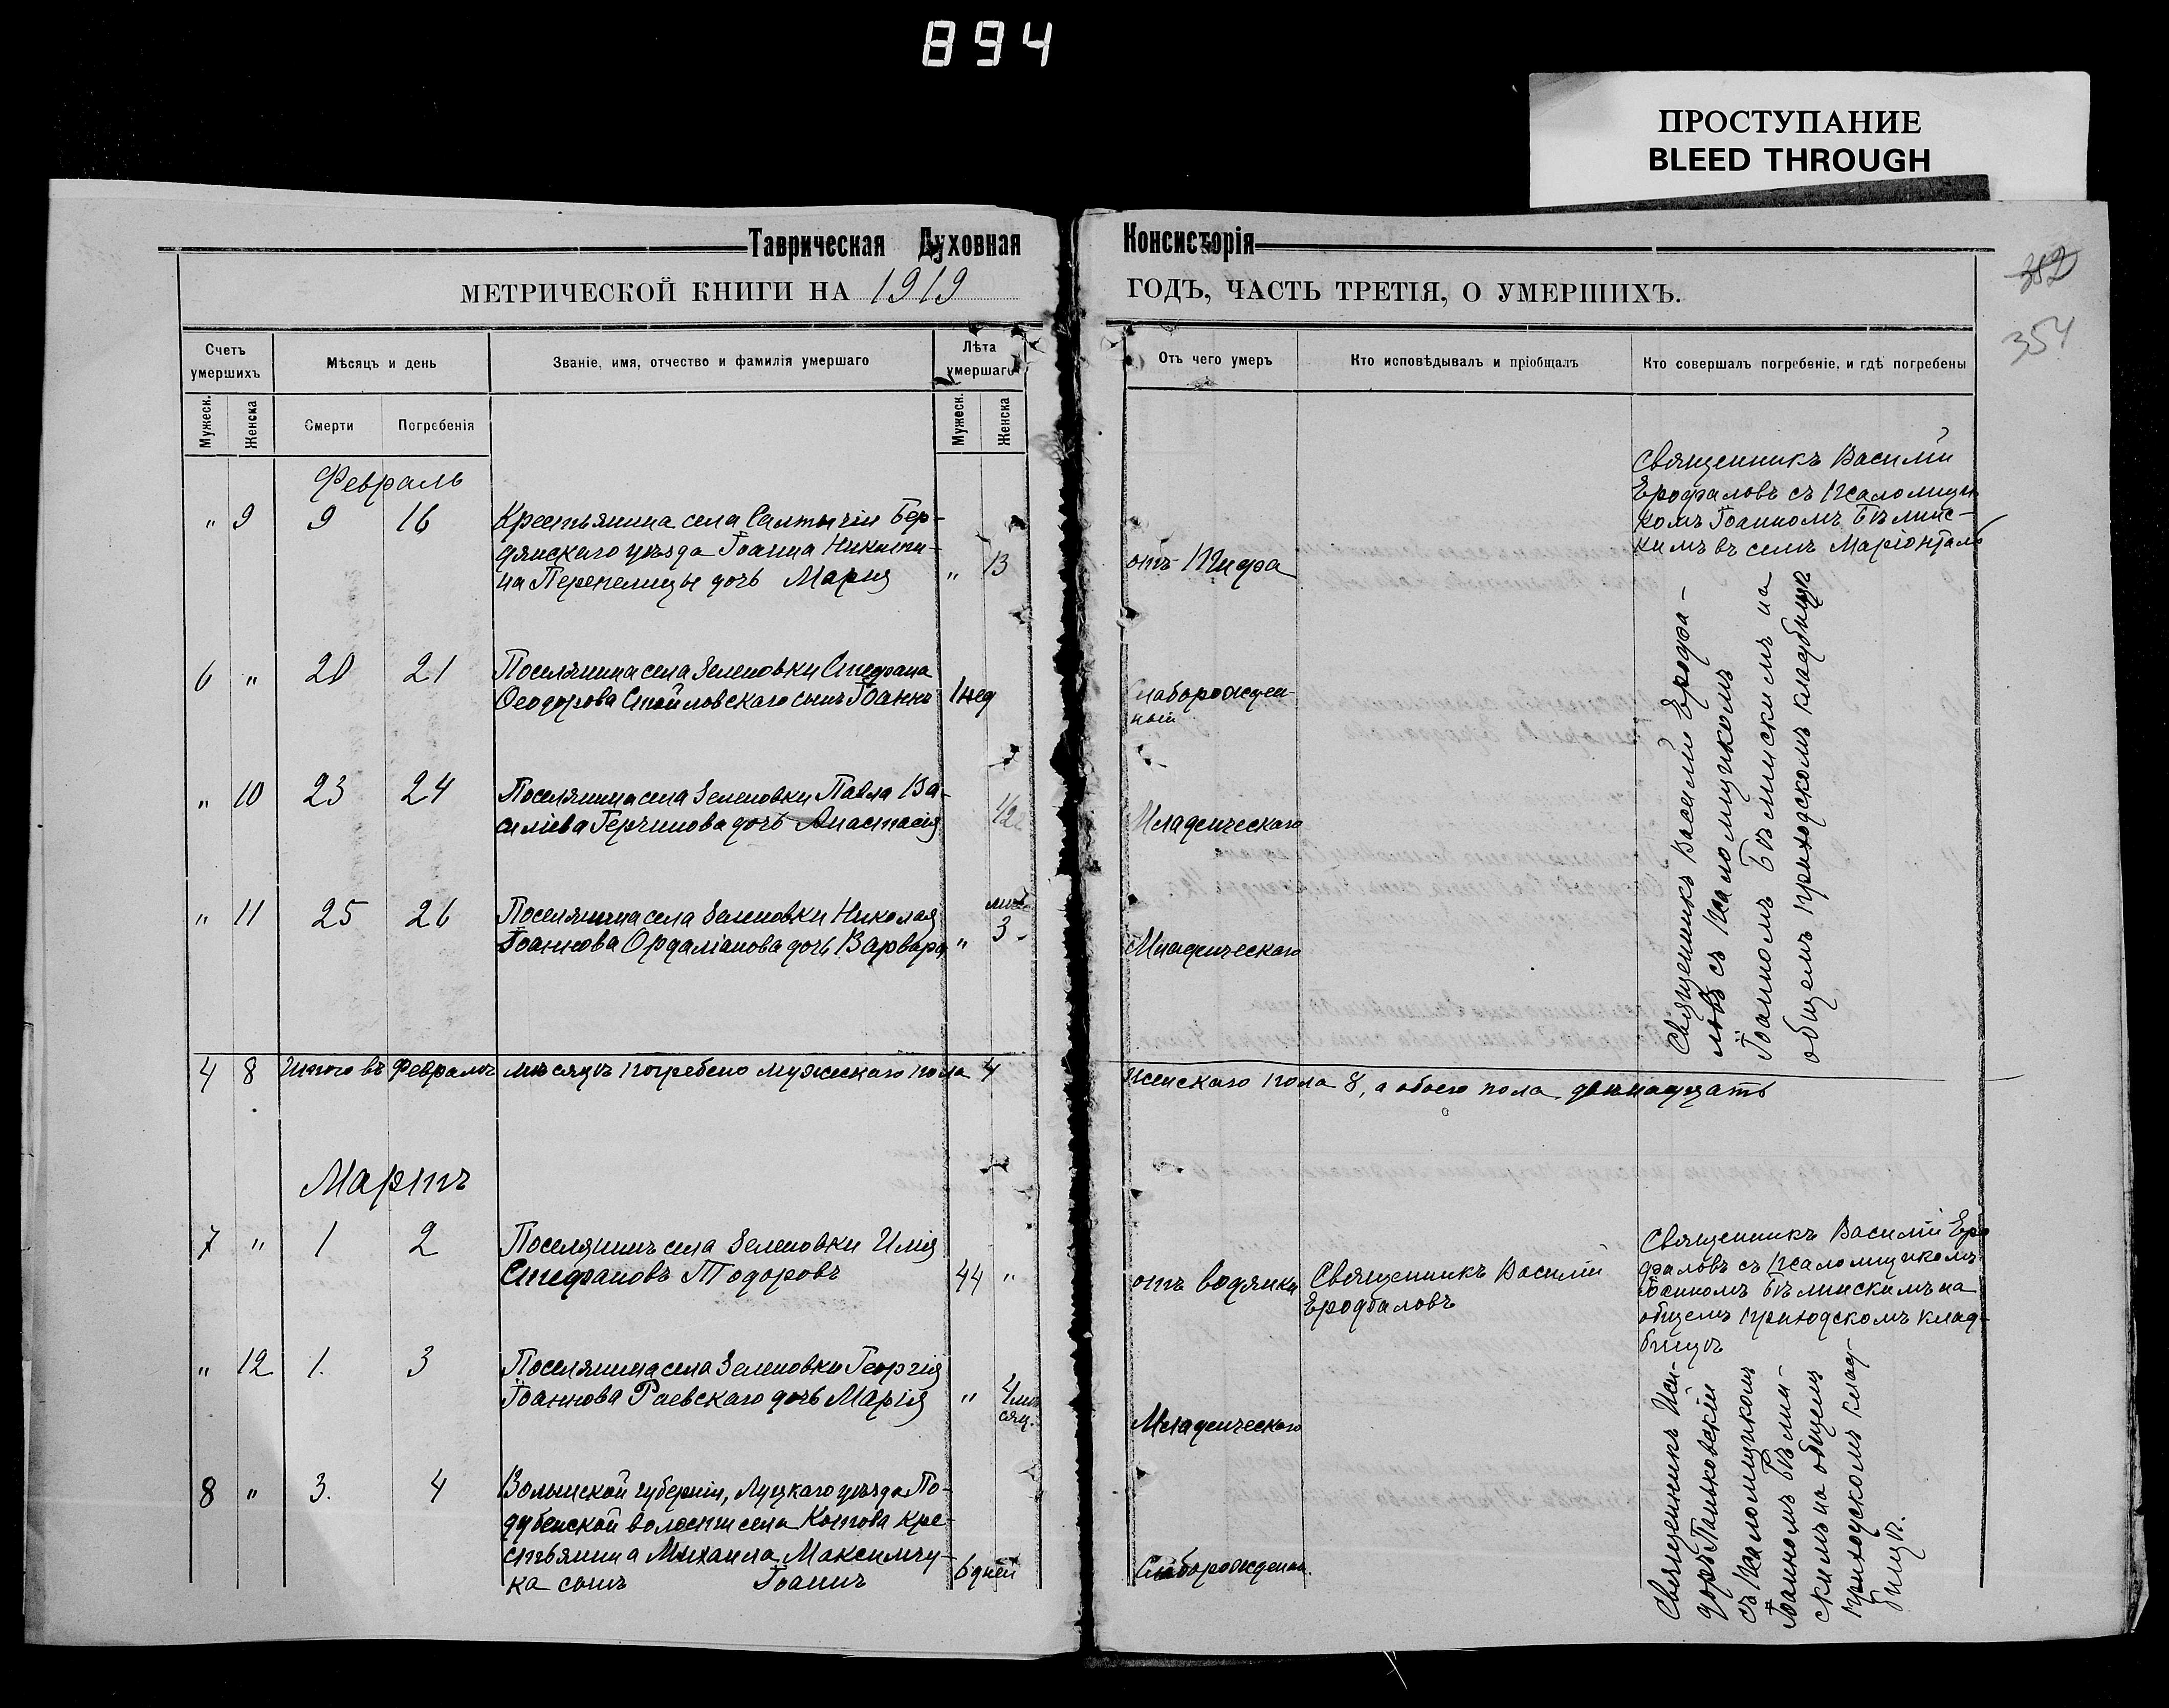 894
ПРОСТУПАНИЕ
BLEED THROUGH
Таврическая Духовная Консисторія
МЕТРИЧЕСКОЙ КНИГИ НА 1919 ГОДЪ, ЧАСТЬ ТРЕТІЯ, О УМЕРШИХЪ.
352
354
Счетъ умершихъ
Мѣсяцъ и день
Званіе, имя, отчество и фамилія умершаго
Лѣта умершаго
Отъ чего умеръ
Кто исповѣдывалъ и пріобщалъ
Кто совершалъ погребеніе, и гдѣ погребены
Мужеск. Женска Смерти Погребенія Мужеск. Женска
Февраль
" 9 9 16 Крестьянина села Салтычіи Бер-
дянскаго уѣзда Іоанна Никити-
на Перепелицы дочь Мария " 13 отъ Тифа
Священникъ Василій
Ерофаловъ съ Псаломщи
комъ Іоанномъ Бѣлинс-
кимъ въ селѣ
6 " 20 21 Поселянина села Зеленовки Стефана
Ѳеодорова Стойловскаго сынъ Іоаннъ 1 нед Слаборожден-
ный
" 10 23 24 Поселянина села Зеленовки Павла Ва-
силіева Герчинова дочь Анастасія 1/2 Младенческаго
" 11 25 26 Поселянина села Зеленовки Николая
Іоаннова Ордаліанова дочь Варвара " 3 Младенческаго
Священникъ Василій Ерофа-
ловъ съ Псаломщикомъ
Іоанномъ Бѣлинскимъ на
общемъ приходскомъ кладбищѣ
4 8 Итого въ Февралѣ мѣсяцѣ погребено мужескаго пола 4
женскаго пола 8, а обоего пола двѣнадцать
Мартъ
7 " 1 2 Поселянинъ села Зеленовки Илія
Стефановъ Тодоровъ 44 " отъ водянки Священникъ Василій
Ерофаловъ
Священникъ Василій Еро
фаловъ съ Псаломщикомъ
Іоанномъ Бѣлинскимъ на
общемъ приходскомъ клад-
бищѣ
" 12 1. 3 Поселянина села Зеленовки Георгія
Іоаннова Раевскаго дочь Марія " 4 мѣ
сяц. Младенческаго
8 " 3. 4 Волынской губерніи, Луцкаго уѣзда По-
дубенской волости села Котова кре-
стьянина Михаила Максимчу-
ка сынъ Іоаннъ 6 дней Слаборожден.
Священникъ Иси-
доръ Паньковскій
съ Псаломщикомъ
Іоанномъ Бѣлин-
скимъ на общемъ
приходскомъ клад-
бищѣ.